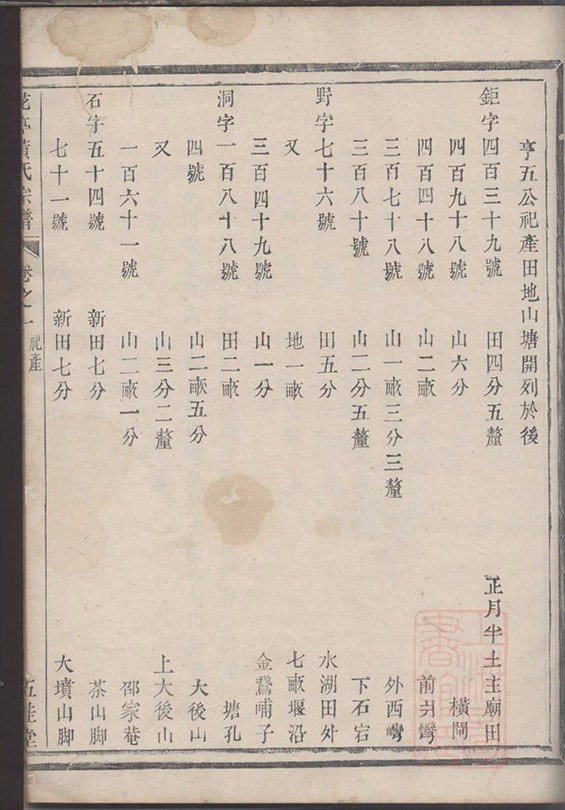 亨五公祀產田地山塘開列於後
鉅字四百三十九號 田四分五釐 正月半土主廟田
四百九十八號 山六分 橫閘
四百四十八號 山二畝 前灣
三百七十八號 山一畝三分三釐 外西灣
三百八十號 山二分五釐 下石宕
野字七十六號 田五分 水湖田外
又 地一畝 七畝堰沿
三百四十九號 山一分 金鵞哺子
洞字一百八十八號 田二畝 塘孔
四號 山二畝五分 大後山
又 山三分二釐 上大後山
一百六十一號 山二畝一分 邵家菴
石字五十四號 新田七分 茶山脚
七十一號 新田七分 大墳山脚
黃氏宗譜 卷之一 祀產 五桂堂